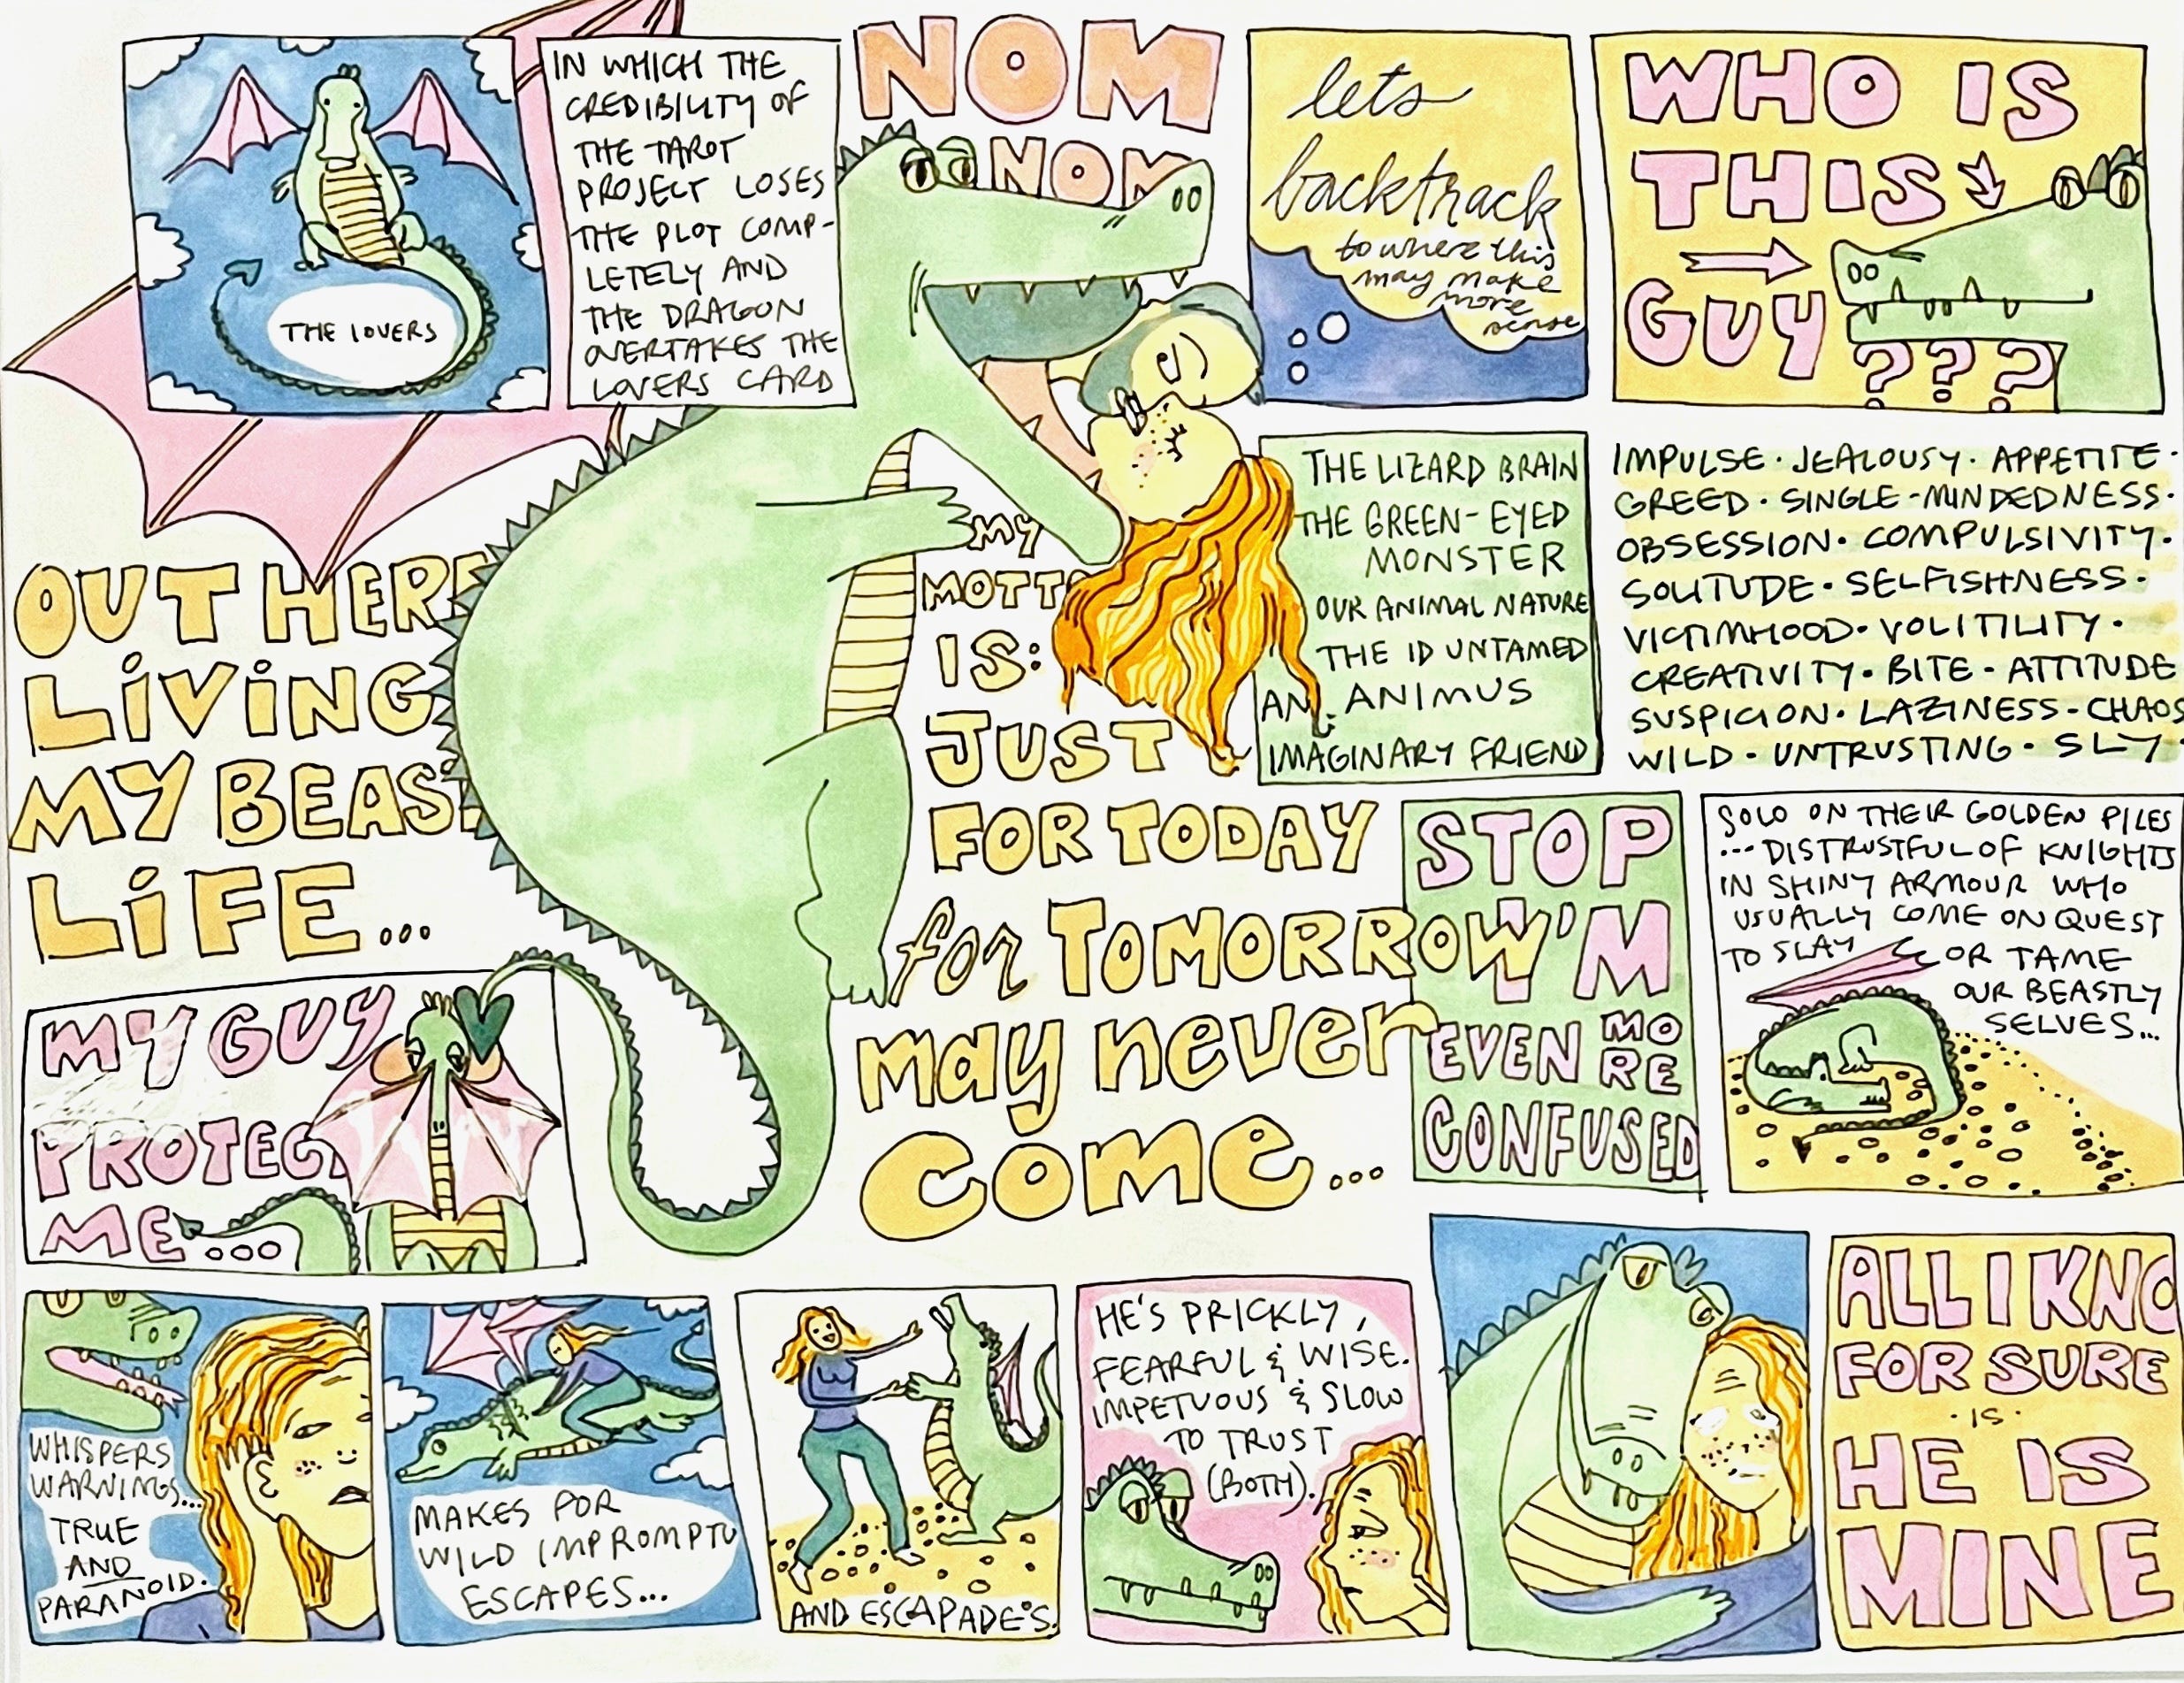 THE LOVERS
IN WHICH THE
CREDIBILITY OF
THE TAROT
PROJECT LOSES
THE PLOT COMP-
LETELY AND
THE DRAGON
OVERTAKES THE
LOVERS CARD
NOM
NOM
lets
backtrack
to where this
may make
more
sense
WHO IS
THIS
GUY
???
THE LIZARD BRAIN
THE GREEN-EYED
MONSTER
OUR ANIMAL NATURE
THE ID UNTAMED
AN ANIMUS
IMAGINARY FRIEND
IMPULSE · JEALOUSY · APPETITE ·
GREED · SINGLE-MINDEDNESS ·
OBSESSION · COMPULSIVITY ·
SOLITUDE · SELFISHNESS ·
VICTIMHOOD · VOLITILITY ·
CREATIVITY · BITE · ATTITUDE
SUSPICION · LAZINESS · CHAOS
WILD · UNTRUSTING · SLY ·
OUT HERE
LiViNG
MY BEAST
LiFE...
MY
MOTTO
IS:
JUST
FOR TODAY
for TOMORROW
may never
come...
STOP
I'M
EVEN MO
RE
CONFUSED
SOLO ON THEIR GOLDEN PILES
... DISTRUSTFUL OF KNIGHTS
IN SHINY ARMOUR WHO
USUALLY COME ON QUEST
TO SLAY OR TAME
OUR BEASTLY
SELVES...
MY GUY
PROTECTS
ME...
WHISPERS
WARNINGS...
TRUE
AND
PARANOID.
MAKES FOR
WILD IMPROMPTU
ESCAPES...
AND ESCAPADE'S.
HE'S PRICKLY,
FEARFUL & WISE.
IMPETUOUS & SLOW
TO TRUST
(BOTH).
ALL I KNO
FOR SURE
· IS ·
HE IS
MINE